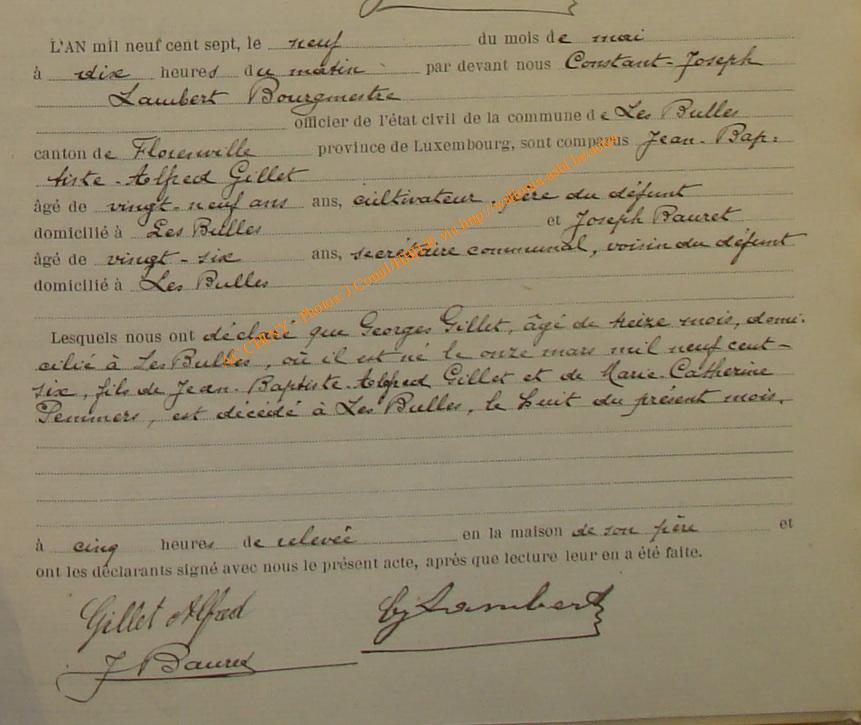 L'AN mil neuf cent sept, le neuf du mois de mai
à dix heures du matin par devant nous Constant-Joseph
Lambert Bourgmestre
officier de l'état civil de la commune de Les Bulles
canton de Florenville province de Luxembourg, sont comparus Jean-Bap-
tiste-Alfred Gillet
âgé de vingt-neuf ans ans, cultivateur, père du défunt
domicilié à Les Bulles et Joseph Bauret
âgé de vingt-six ans, secrétaire communal, voisin du défunt
domicilié à Les Bulles
Lesquels nous ont déclaré que Georges Gillet, âgé de treize mois, domi-
cilié à Les Bulles, où il est né le onze mars mil neuf cent-
six, fils de Jean-Baptiste-Alfred Gillet et de Marie-Catherine
Pemmers, est décédé à Les Bulles, le huit du présent mois,
à cinq heures de relevée en la maison de son père et
ont les déclarants signé avec nous le présent acte, après que lecture leur en a été faite.
Gillet Alfred CJ Lambert
J Bauret